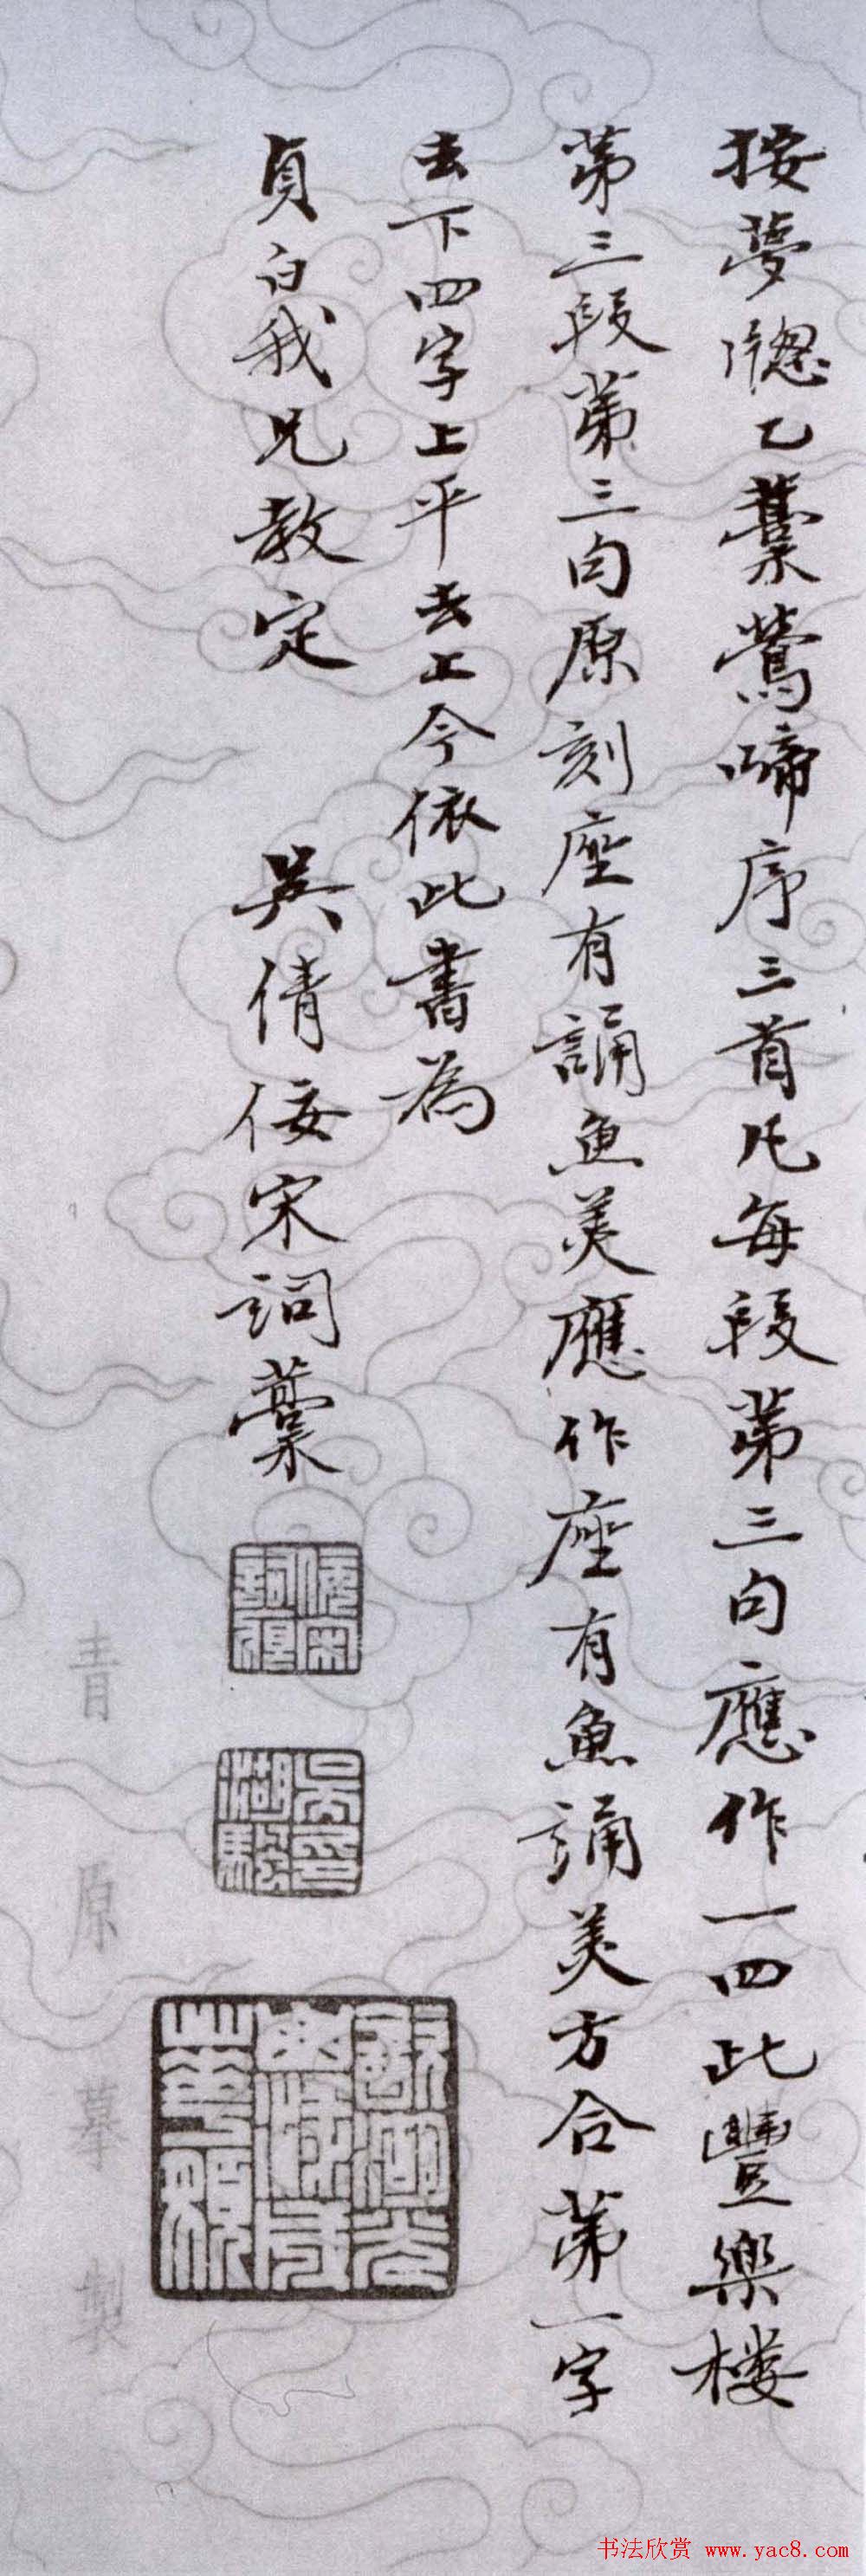 按夢牕乙藁鶯啼序三首凡每段第三句應作一四此豐樂樓
第三段第三句原刻座有誦魚美應作座有魚誦美方合第一字
去下四字上平去上今依此書為
貞白我兄教定
吳倩佞宋詞藁
倩宋詞痕
吳湖颿印
青原摹製
书法欣赏 www.yac8.com